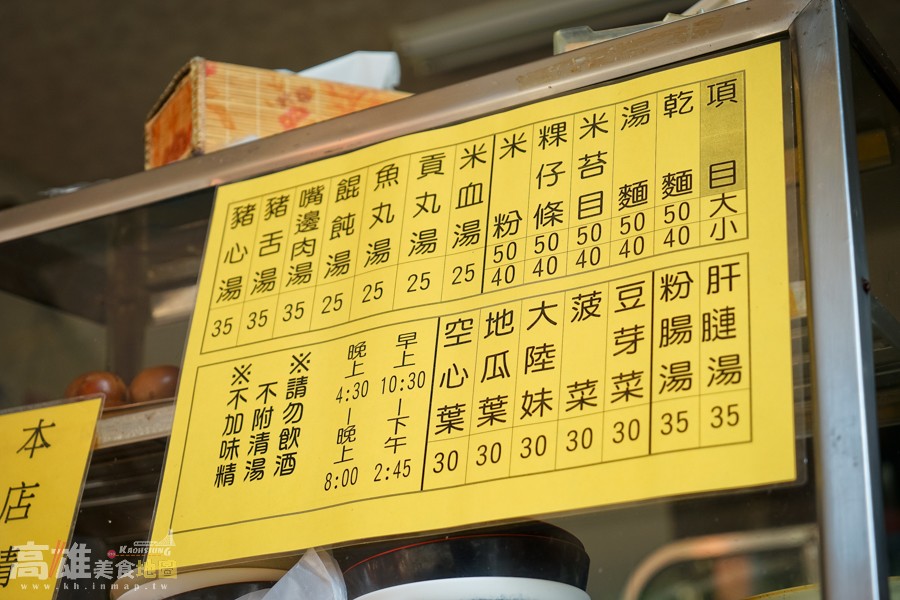 項目 大 小
乾麵 50 40
湯麵 50 40
米苔目 50 40
粿仔條 50 40
米粉 50 40
米血湯 25
貢丸湯 25
魚丸湯 25
餛飩湯 25
嘴邊肉湯 35
豬舌湯 35
豬心湯 35
肝腱湯 35
粉腸湯 35
豆芽菜 30
菠菜 30
大陸妹 30
地瓜葉 30
空心葉 30
早上10:30–下午2:45
晚上4:30–晚上8:00
※請勿飲酒
不附清湯
※不加味精
本店
高雄美食地圖
KAOHSIUNG
www.kh.inmap.tw